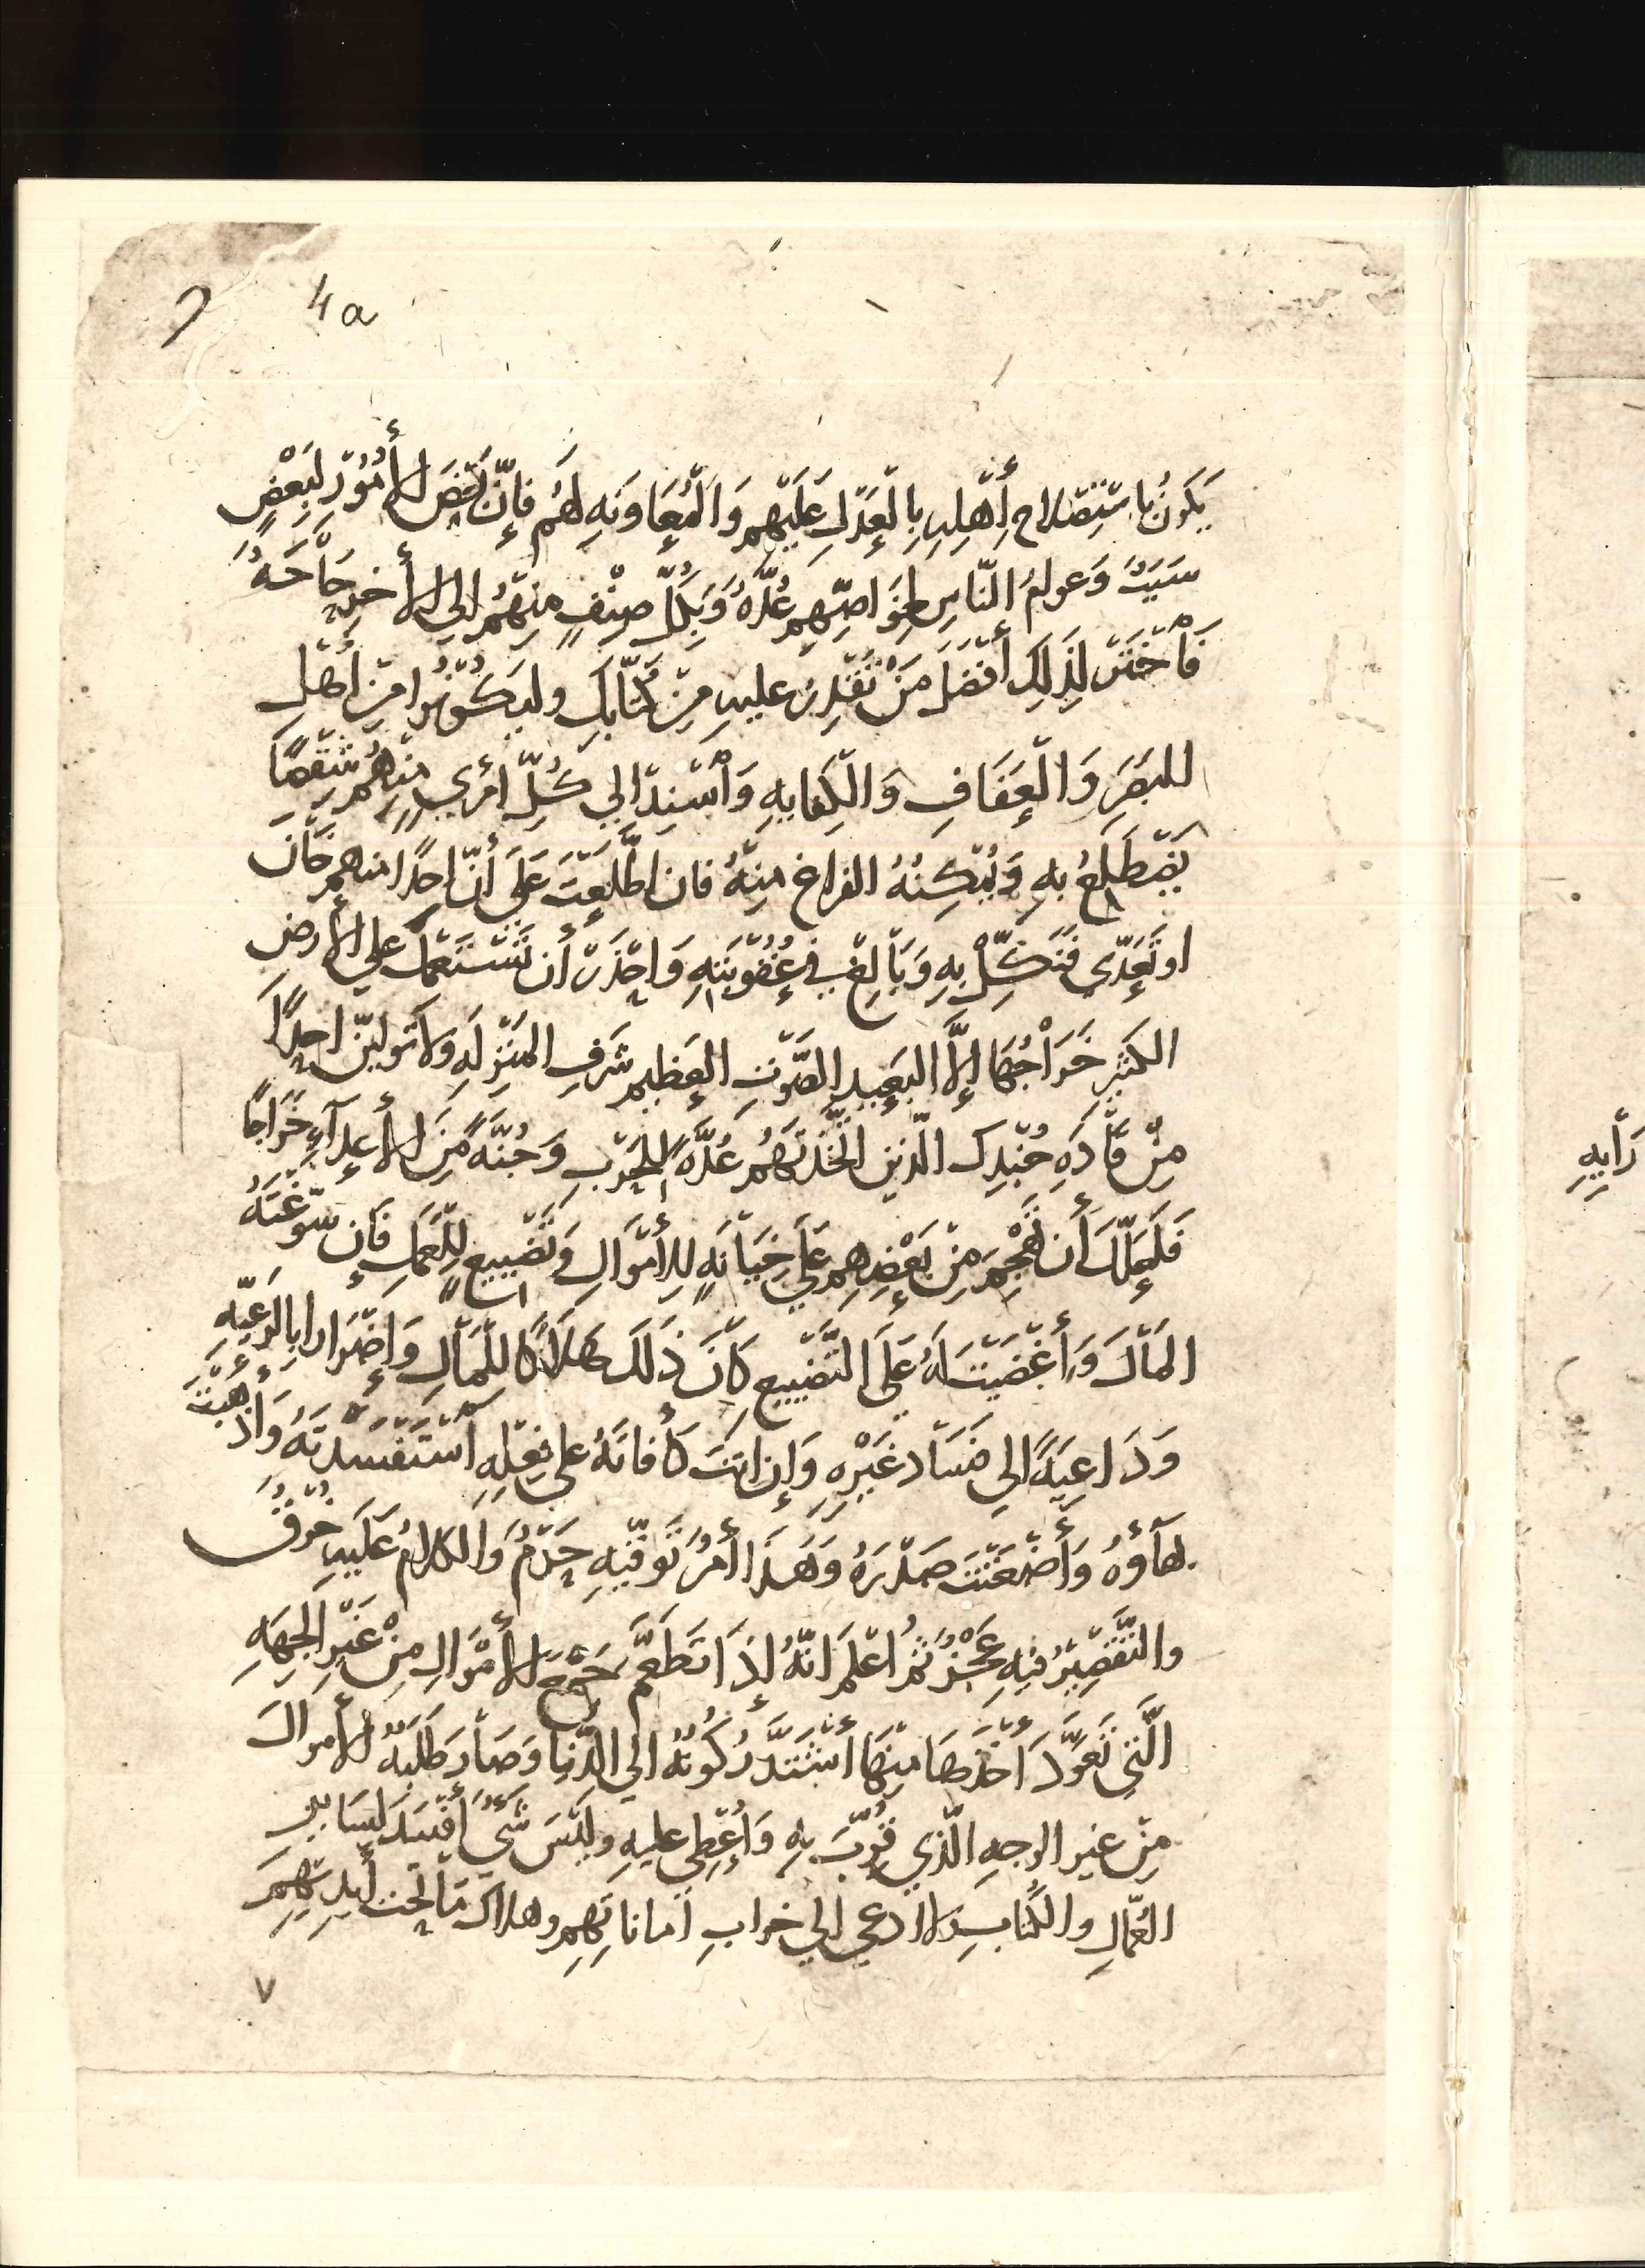 4a
يَكُونُ بِاسْتِصْلَاحِ أَهْلِهِ بِالْعَدْلِ عَلَيْهِم وَالْمُعَاوَنَهِ لَهُم فَإِنَّ بَعْضَ الأُمُوْرِ لِبَعْضٍ
سَبَبٌ وَعوامُ النّاسِ لِخَوَاصِّهِم عُدَّةٌ وَبِكُلِّ صِنْفٍ مِنْهُمْ إلي الأخرِ حَاْجَةٌ
فَاْخْتَرْ لِذَلِكَ أَفْضَلَ مَنْ تَقْدِرُ عليهِ مِنْ كُتّابِكَ وليَكُوْنُوا مِنْ أهْلِ
البَصَرِ وَالْعَفَافِ وَالْكِفَايهِ وَاْسْنِدْ إلي كُلِّ امْرِيٍ مِنْهُمْ شِقْصًا
يَضْطَلِعُ بهِ وَيُمْكِنُهُ الفراغ مِنْهُ فان اطَّلَعْتَ عَلَى أنّ احدًا منهم خَاْنَ
او تَعَدّي فَنَكِّلْ بِهِ وَبَاْلِغْ في عُقُوْبَتِهِ وَاحْذَرْ أن تَسْتَعْمِلَ علي الأرض
الكَثيرِ خَرَاْجُهَا إلَّا البَعِيدِ الصَّوْتِ العَظِيمِ شَرَفِ المَنْزِلَهِ ولا تُولينّ احدًا
مِنْ قَاْدَهِ جُنْدِكَ الّذين اتَّخَذْتَهُم عُدَّةً لِلحَرْبِ وَجُنَّةً مِنَ الأعدآءِ خَرَاجًا
فَلَعَلَّكَ أن تَهْجِمَ مِنْ بَعْضِهِم عَلَى خِيَاْنَهٍ لِلأَمْوَالِ وَتَضْيِيعٍ لِلْعَمَلِ فَإِن سَوَّغْتَهُ
المَاْلَ وَأَغْضَيْتَ لَهُ عَلَى التَّضْيِيعِ كَاْنَ ذَلكَ هَلَاْكًا لِلْمَاْلِ وَإِضْرَارًا بِالرَّعِيَّهِ
وَدَاعِيَةً إلي فَسَاْدِ غَيْرِهِ وَإِن انتَ كَأْفاتَهُ علي فِعْلِهِ اْسْتَفْسَدْتَهُ وَأَذْهَبْتَ
بهآؤهُ وَأَضْغَنْتَ صَدْرَهُ وَهَذَا أَمْرٌ تَوَقّيْهِ حَزْمٌ وَالكلامُ عَلَيهِ خُرْقٌ
والتَّقْصِيْرُ فيهِ عَجْزٌ ثُمَّ اعْلَمْ انّهُ إذَا تَطَعَّمَ جَمْعَ الأمْوَالِ مِنْ غَيْرِ الجِهَهِ
الَّتِي تَعَوَّدَ أَخْذَهَا مِنْهَا أشْتَدَّ رُكُوْنُهُ إلي الدُّنيا وَصَاْرَ طَلَبُهُ الأموالَ
مِنْ غير الوجهِ الّذي قُرِّبَ بهِ وَأُعْطِيَ عليهِ وليْسَ شَيٌ أَفْسَدَ لِسَايرِ
العُمّالِ والكُتابِ ولا ادعي إلي خرابِ أماناتِهِم وهلاك مَا تحت أيدِيْهِم
٧
رَأيهِ